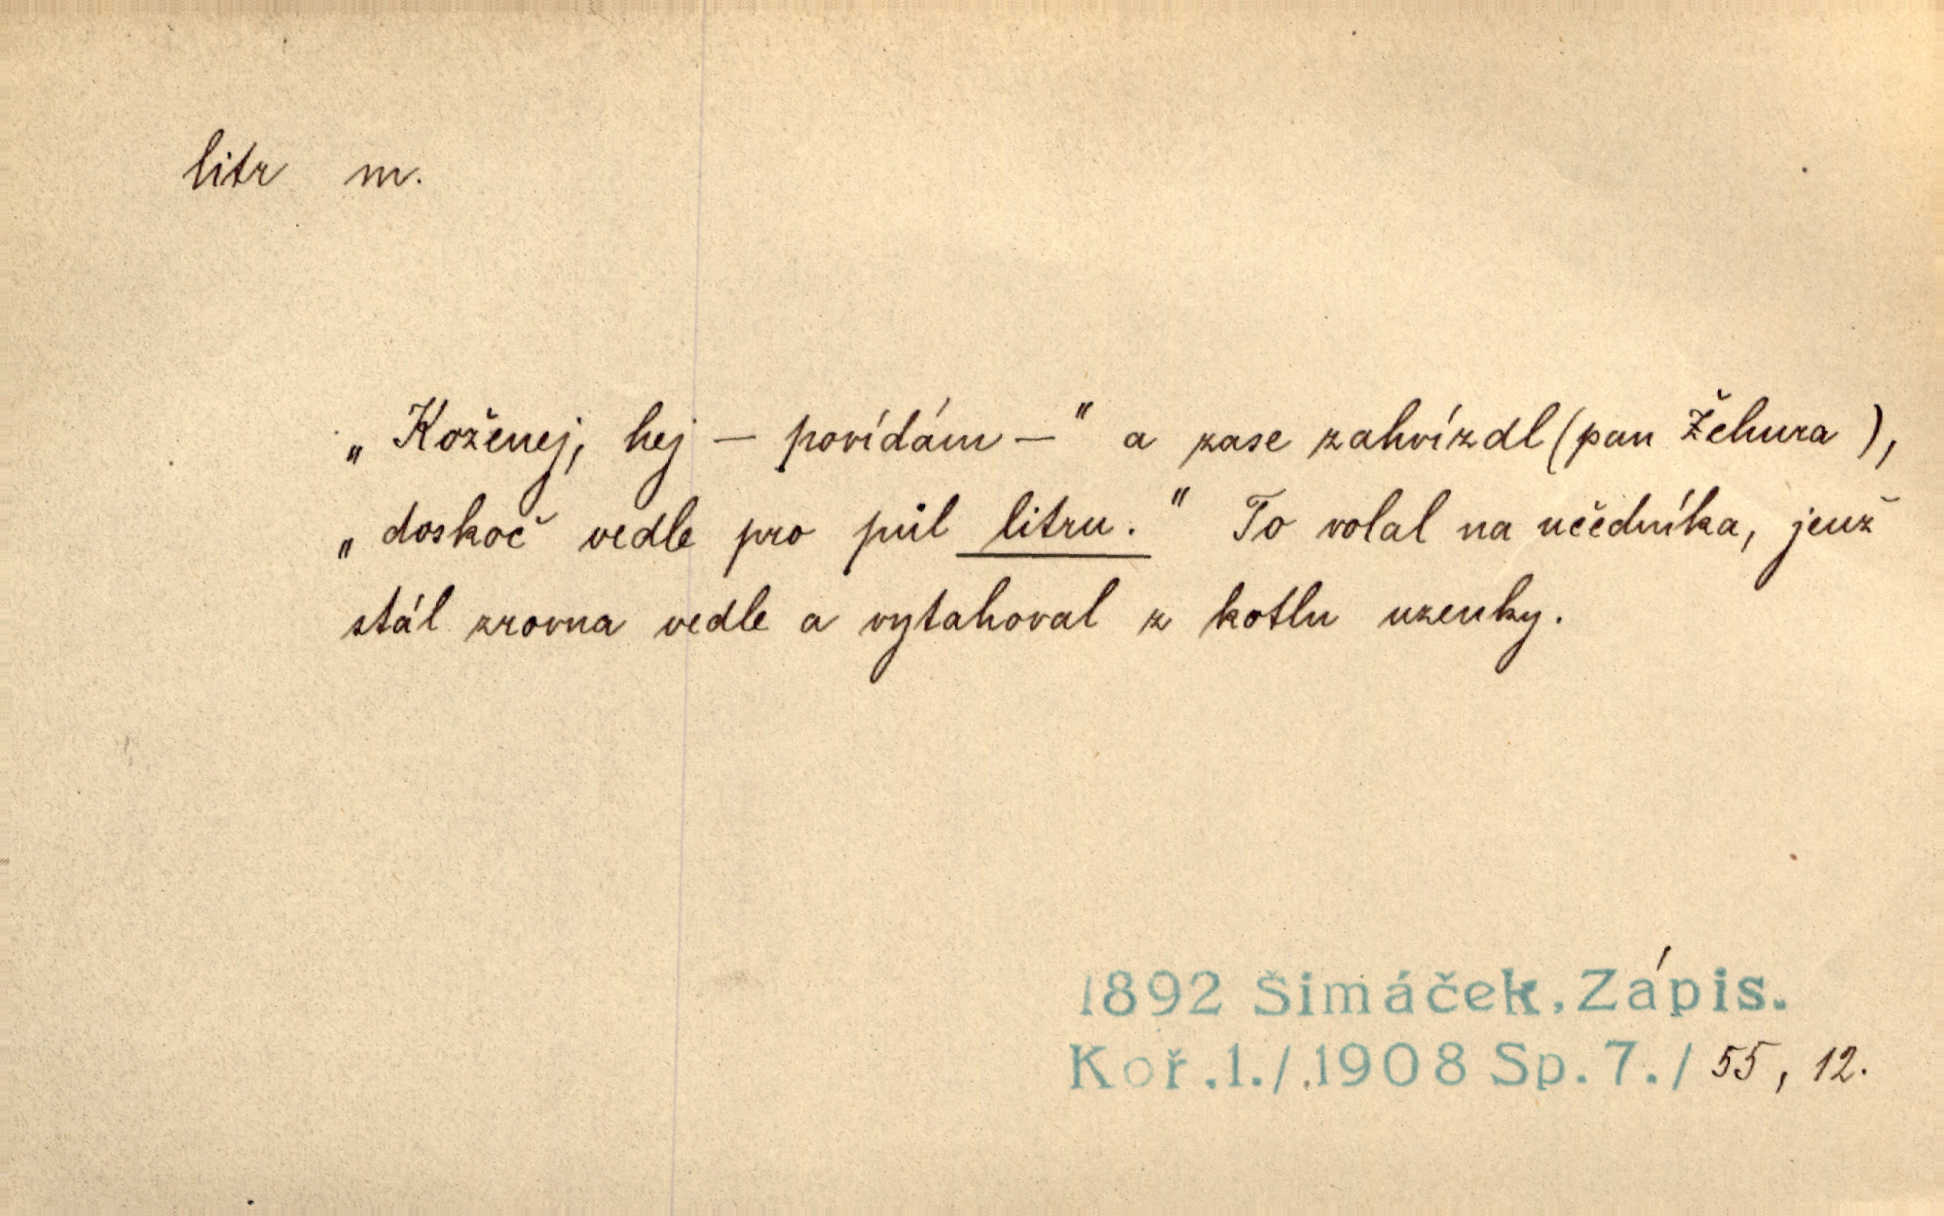 litr m.
„Koženej, hej — povídám —" a zase zahvízdl (pan Žehura),
„doskoč vedle pro půl litru." To volal na učedníka, jenž
stál zrovna vedle a vytahoval z kotlu uzenky.
1892 Šimáček, Zápis.
Koř.1./.1908 Sp.7./ 55, 12.